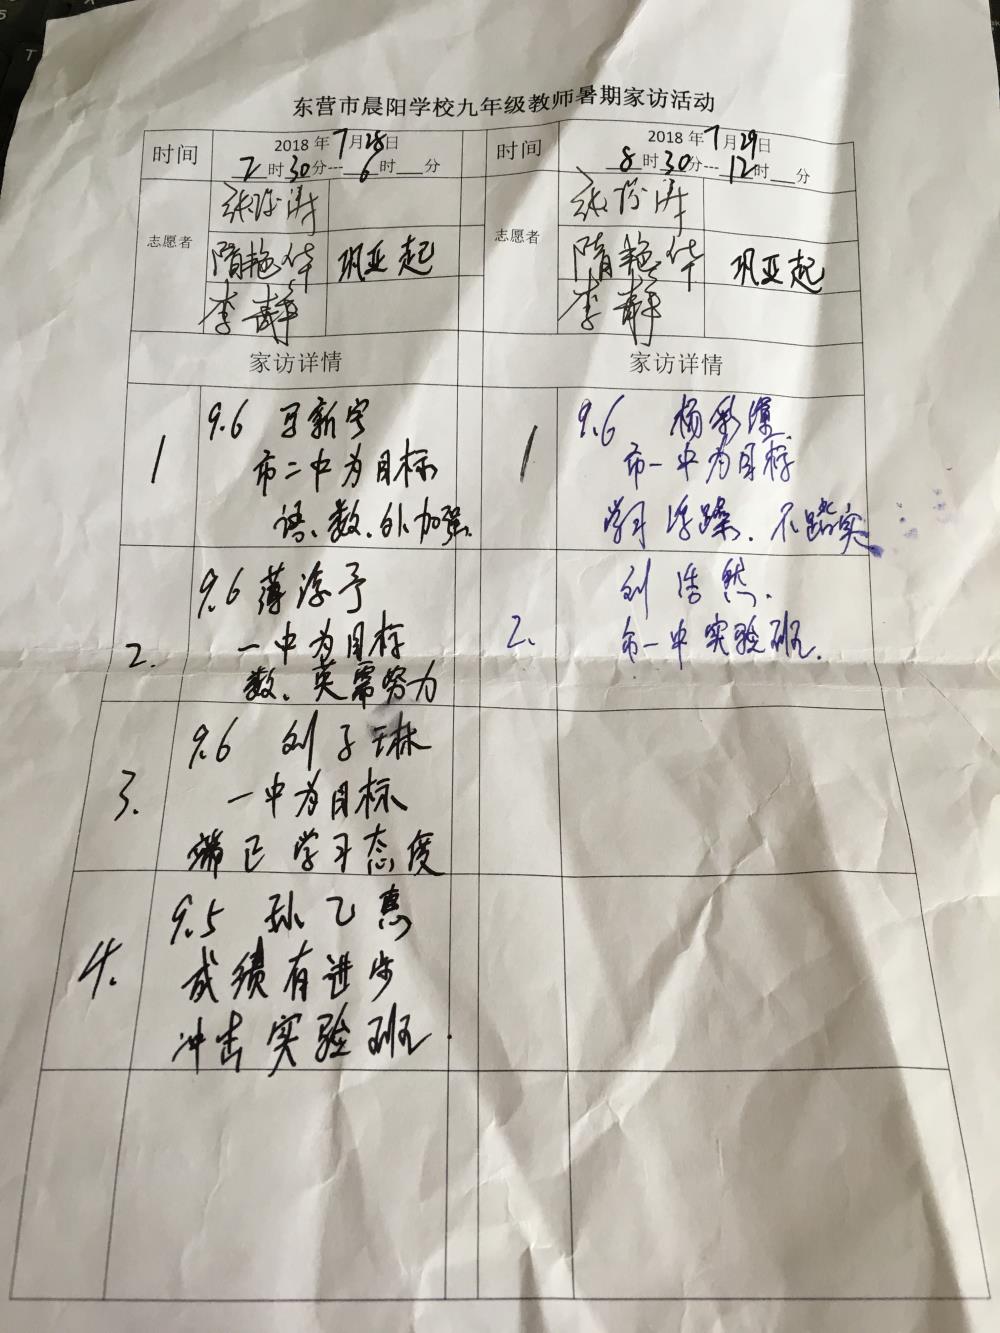 东营市晨阳学校九年级教师暑期家访活动
时间
2018 年 7 月 28 日
2 时 30 分---6 时 分
时间
2018 年 7 月 29 日
8 时 30 分---12 时 分
志愿者
隋艳华 巩亚起
李静
志愿者
隋艳华 巩亚起
李静
家访详情
家访详情
1
9.6 新宇
市二中为目标
语、数、外加强.
2.
9.6 薄淳予
一中为目标
数、英需努力
3.
9.6 刘子琳
一中为目标
端正学习态度
4.
9.5 孙乙惠
成绩有进步
冲击实验班.
1
9.6 杨彩
市一中为目标
学习浮躁、不踏实
2.
刘浩然.
市一中实验班.